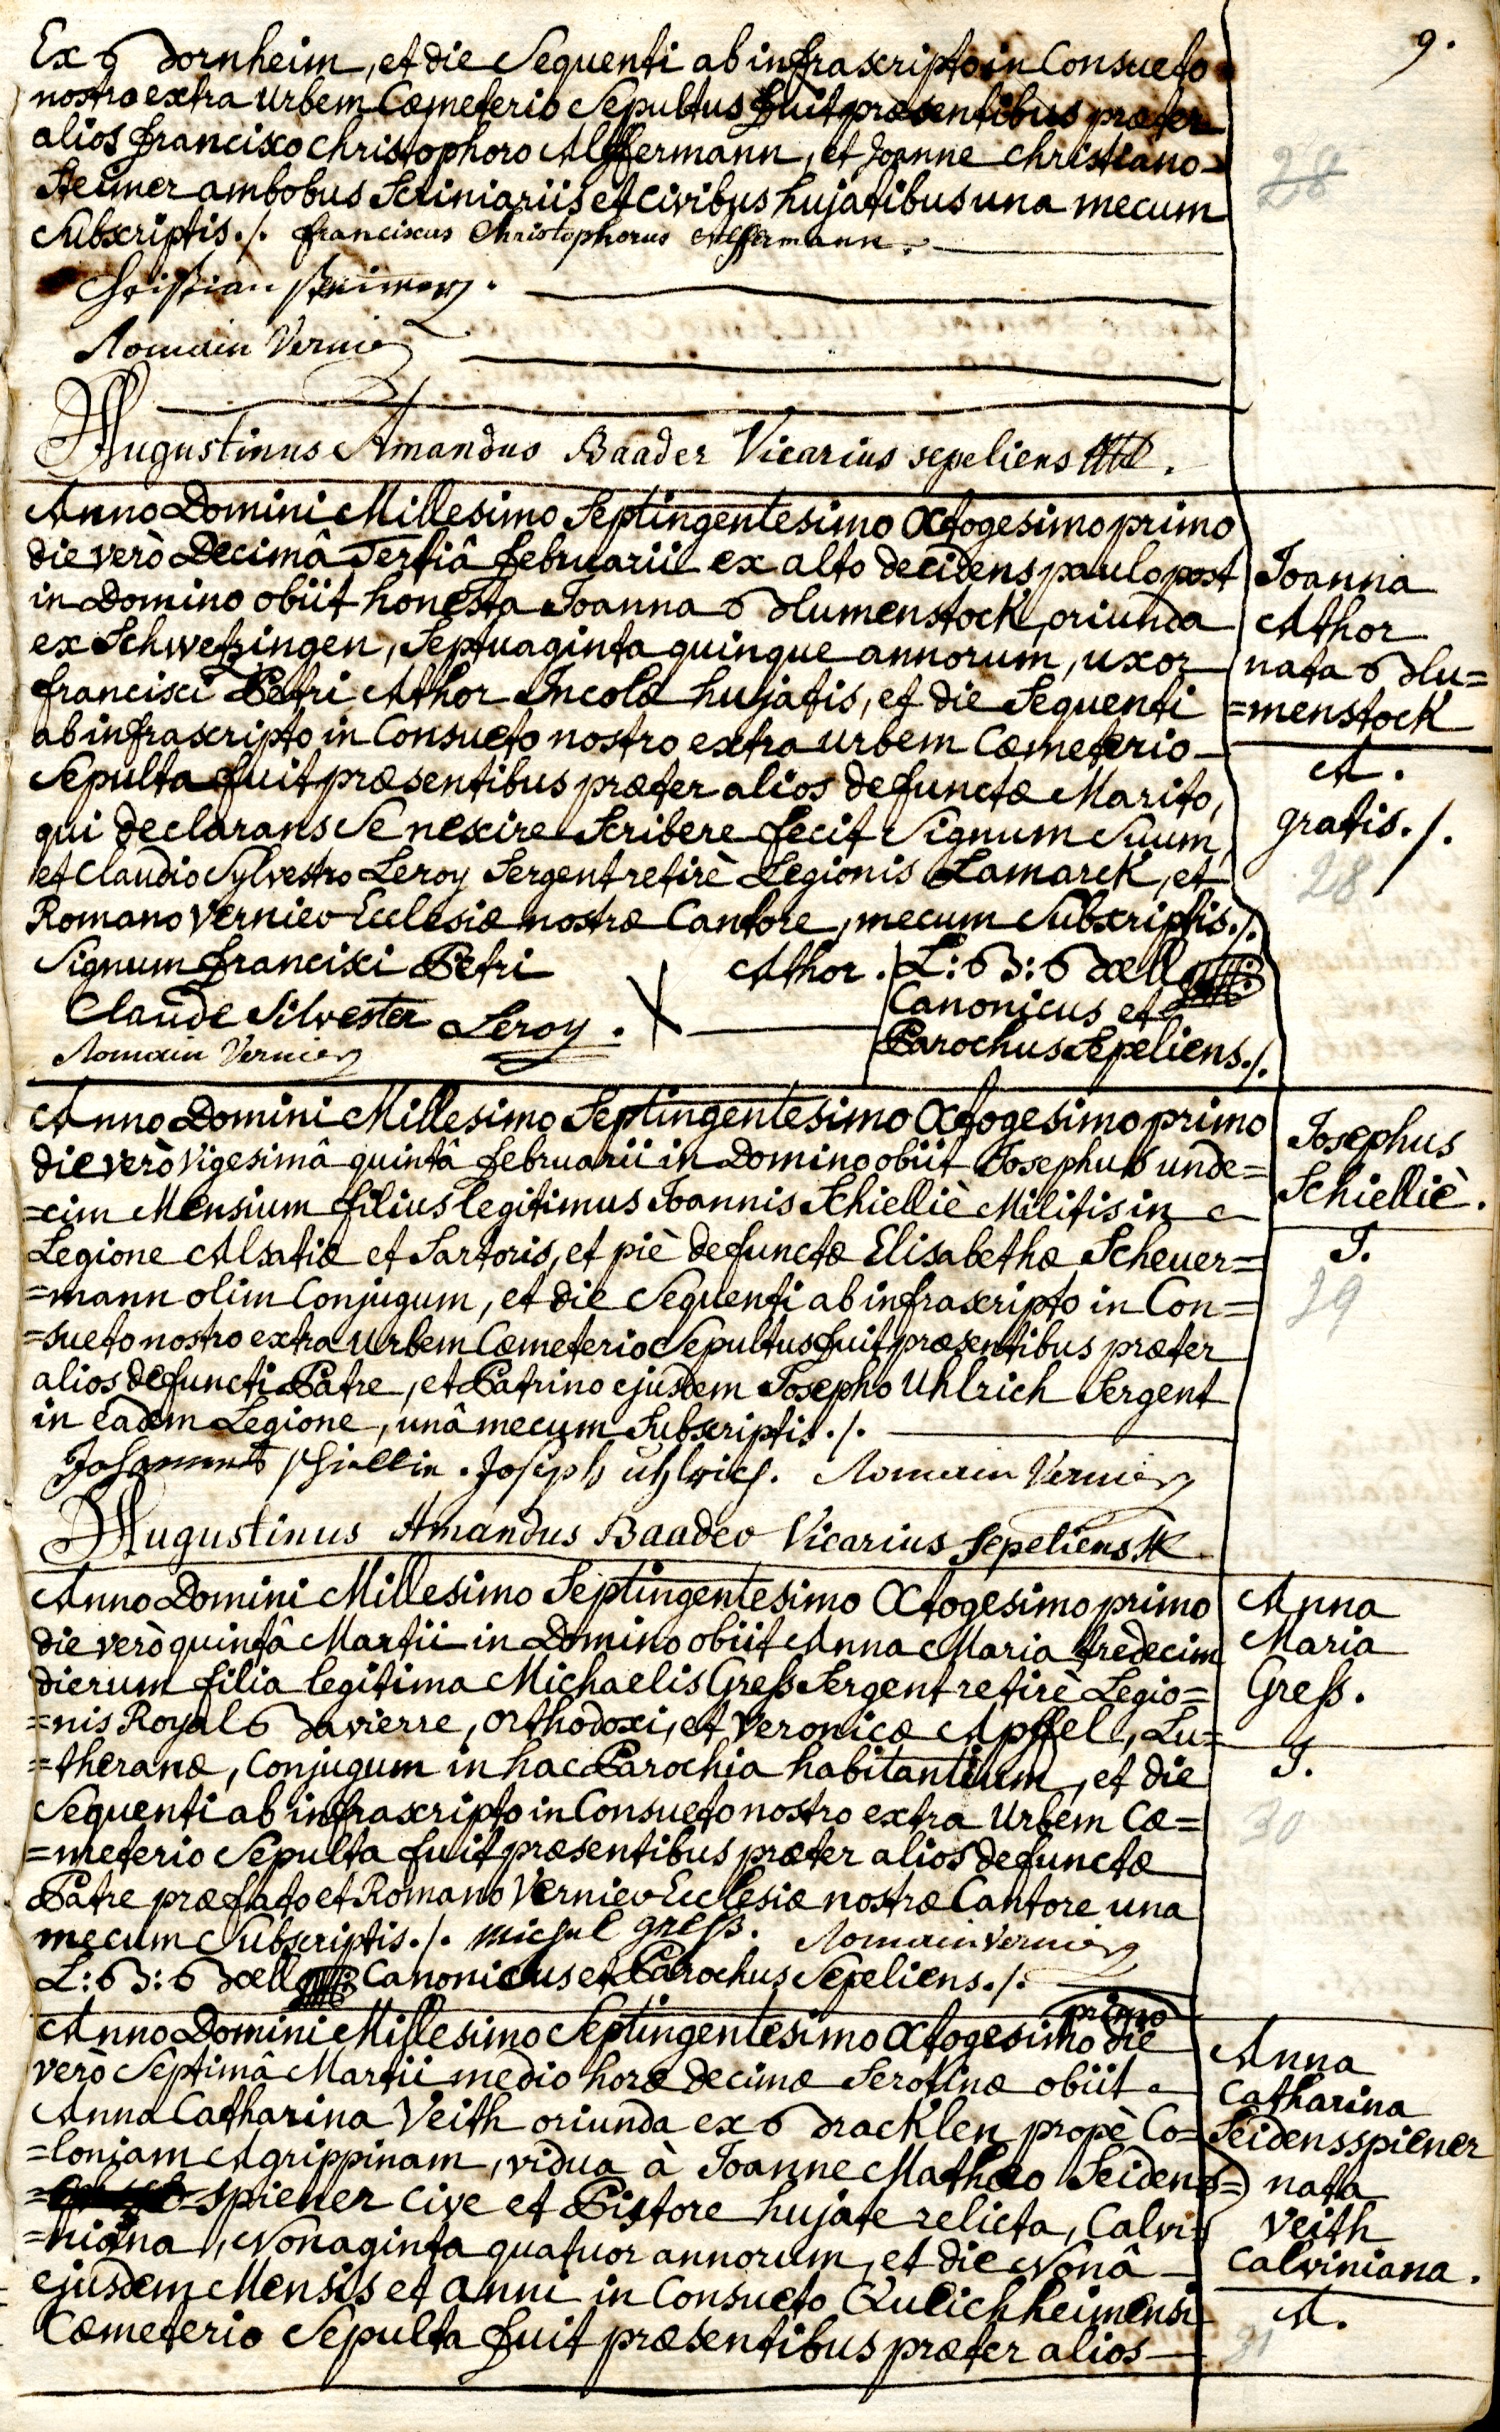 9.
Ex Bornheim, et die Sequenti ab infrascripto in Consueto
nostro extra Urbem Cæmeterio Sepultus fuit præsentibus præter
alios francisco christophoro Alffermann, et Joanne christiano
Steimer ambobus Scriniariis et Civibus hujatibus una mecum
Subscriptis ./. franciscus Christophorus Alffermann.
28
Christian Steimer.
Romain Vernier
Augustinus Amandus Baader Vicarius sepeliens
Anno Domini Millesimo Septingentesimo Octogesimo primo
die verò Decimâ Tertiâ februarii ex alto decidens paulo post
in Domino obiit honesta Joanna Blumenstock, oriunda
ex Schwetzingen, Septuaginta quinque annorum, uxor
francisci Petri Athor Incolæ hujatis, et die Sequenti
ab infrascripto in Consueto nostro extra urbem Cæmeterio
Sepulta fuit præsentibus præter alios defunctæ Marito,
qui declarans Se nescire Scribere fecit Signum Suum,
et Claudio Sylvestro Leroy Sergent retirè Legionis Lamarck, et
Romano Vernier Ecclesiæ nostræ Cantore, mecum Subscriptis ./.
Signum francisci Petri X Athor.
Claude Silvester Leroy.
Romain Vernier
L: B: Bœll
Canonicus et
Parochus Sepeliens ./.
Joanna
Athor
nata Blu=
=menstock
A.
gratis ./.
28
Anno Domini Millesimo Septingentesimo Octogesimo primo
die verò Vigesimâ quintâ februarii in Domino obiit Josephus unde=
=cim Mensium filius legitimus Joannis Schielliè Militis in
Legione Alsatiæ et Sartoris, et piè defunctæ Elisabethæ Scheuer=
=mann olim Conjugum, et die Sequenti ab infrascripto in Con=
=sueto nostro extra Urbem Cæmeterio Sepultus fuit præsentibus præter
alios defuncti Patre, et Patrino ejusdem Josepho Uhlrich Sergent
in eâdem Legione, unâ mecum Subscriptis ./.
Johannes Schiellin. Joseph Uhlrich. Romain Vernier
Augustinus Amandus Baader Vicarius Sepeliens
Josephus
Schielliè.
J.
29
Anno Domini Millesimo Septingentesimo Octogesimo primo
die verò quintâ Martii in Domino obiit Anna Maria tredecim
dierum filia legitima Michaelis Greß Sergent retirè Legio=
=nis Royal Bavierre, Orthodoxi, et Veronicæ Apffel, Lu=
=theranæ, Conjugum in hac Parochia habitantium, et die
Sequenti ab infrascripto in Consueto nostro extra Urbem Cæ=
=meterio Sepulta fuit præsentibus præter alios defunctæ
Patre præfato et Romano Vernier Ecclesiæ nostræ Cantore una
mecum Subscriptis ./. Michel Greß. Romain Vernier
L: B: Bœll Canonicus et Parochus Sepeliens ./.
Anna
Maria
Greß.
J.
30
Anno Domini Millesimo Septingentesimo Octogesimo primo die
verò Septimâ Martii medio horæ decimæ Serotinæ obiit
Anna Catharina Veith oriunda ex Bracklen propè Co=
=loniam Agrippinam, vidua à Joanne Mathæo Seidens=
=spiener Cive et Pistore hujate relicta, Calvi=
=niana, Nonaginta quatuor annorum, et die Nonâ
ejusdem Mensis et anni in Consueto Queichheimensi
Cæmeterio Sepulta fuit præsentibus præter alios
Anna
Catharina
Seidensspiener
nata
Veith
Calviniana.
A.
31